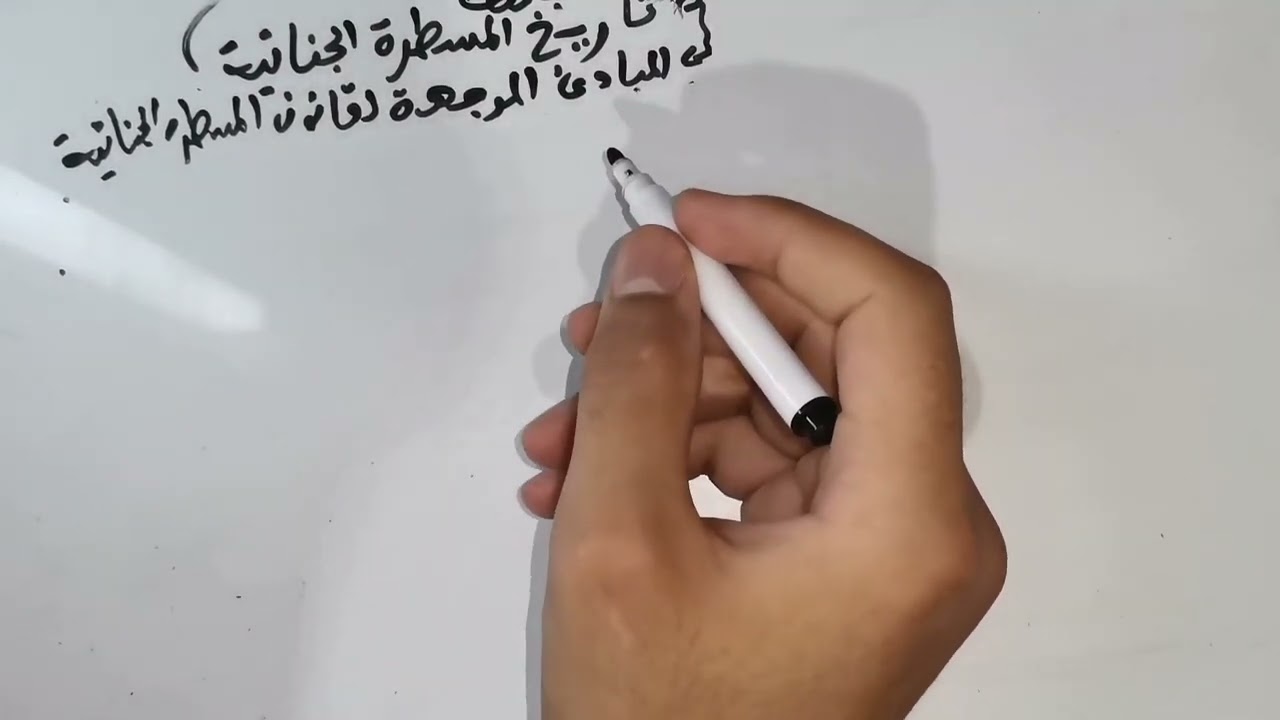 تاريخ المسطرة الجنائية )
المبادئ الموجهة لقانون المسطرة الجنائية